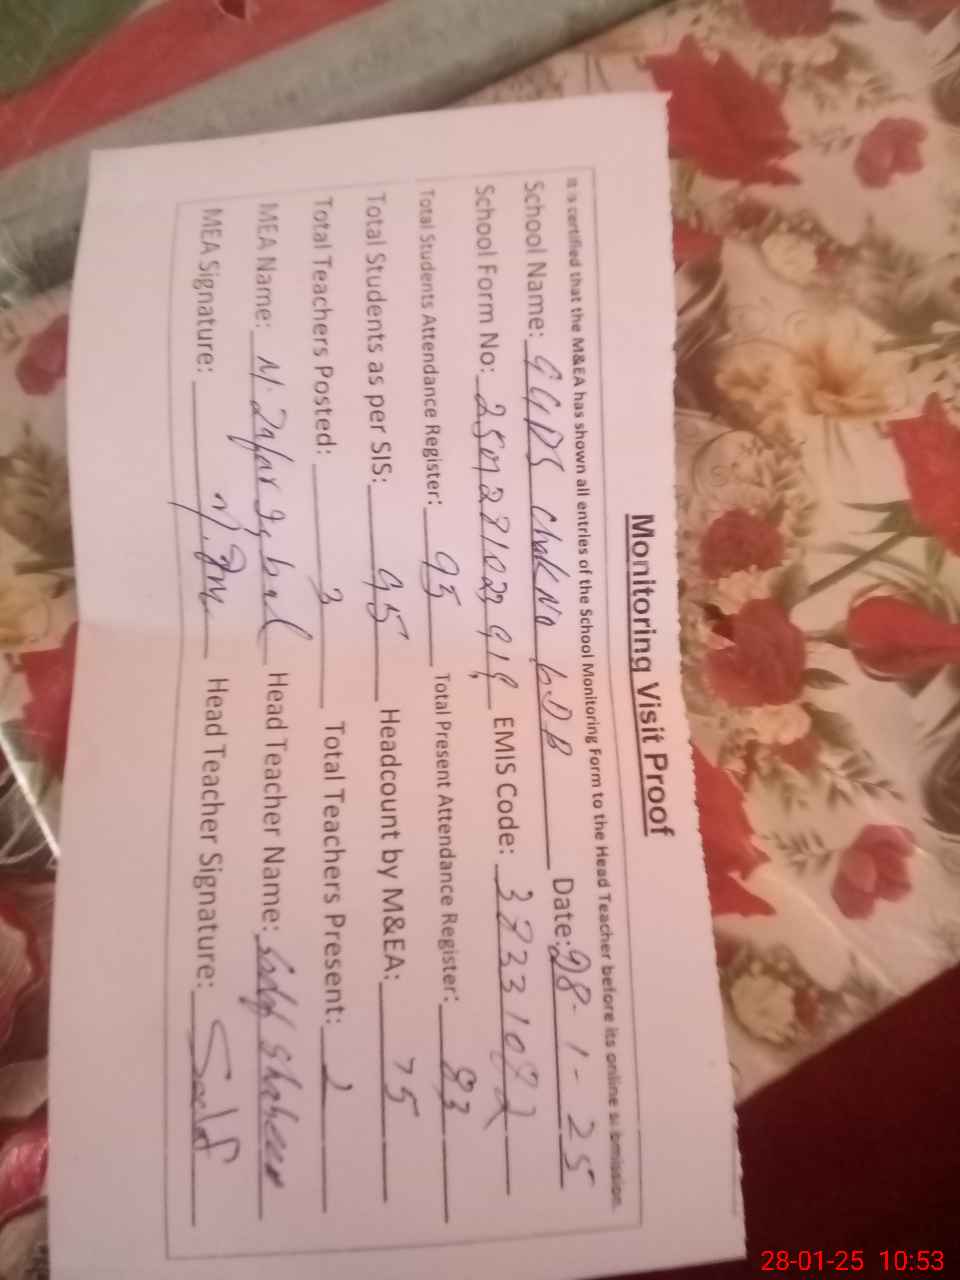 Monitoring Visit Proof
It is certified that the M&EA has shown all entries of the School Monitoring Form to the Head Teacher before its online submission.
School Name: GGPS Chak No 6DB Date: 28-1-25
School Form No: EMIS Code:
Total Students Attendance Register: 95 Total Present Attendance Register: 83
Total Students as per SIS: 95 Headcount by M&EA: 75
Total Teachers Posted: 3 Total Teachers Present: 2
MEA Name: M. Zafar Iqbal Head Teacher Name: Shaheen
MEA Signature: Head Teacher Signature:
28-01-25 10:53